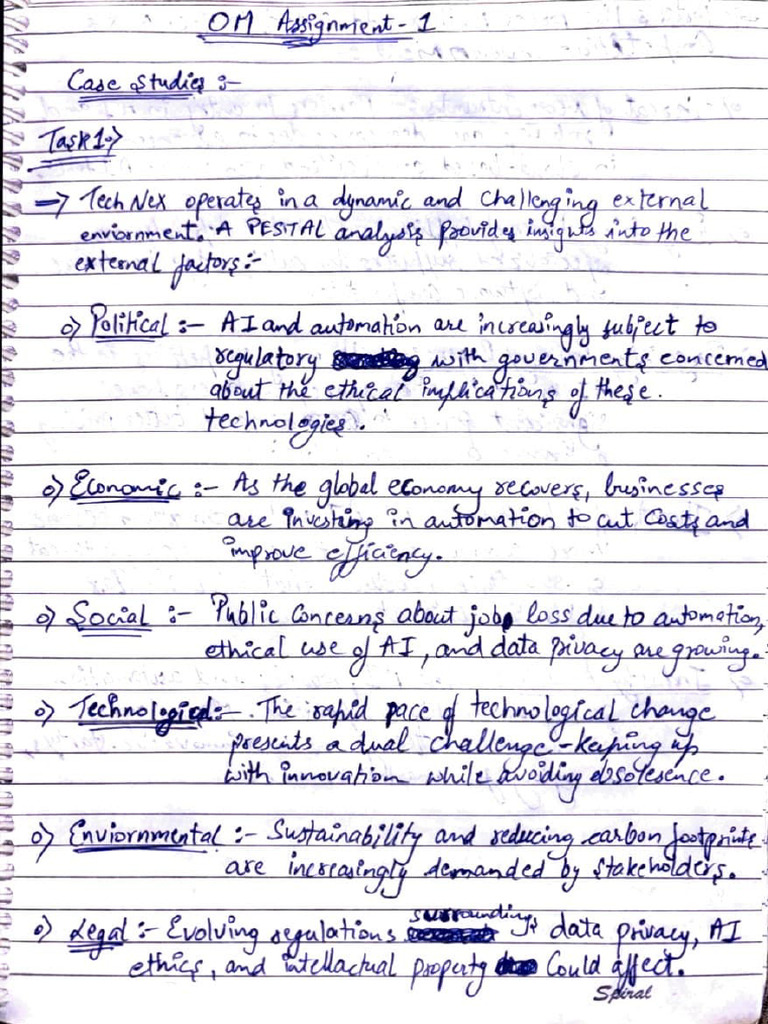 OM Assignment - 1
Case Studies :-
Task 1 :-
→ TechNex operates in a dynamic and challenging external
enviornment. A PESTAL analysis provides insights into the
external factors :-
o) Political :- AI and automation are increasingly subject to
regulatory with governments concerned
about the ethical implications of these.
technologies.
o) Economic :- As the global economy recovers, businesses
are investing in automation to cut costs and
improve efficiency.
o) Social :- Public Concerns about job loss due to automation,
ethical use of AI, and data privacy are growing.
o) Technological :- The rapid pace of technological change
presents a dual challenge - keeping up
with innovation while avoiding obsolesence.
o) Enviornmental :- Sustainability and reducing carbon footprints
are increasingly demanded by stakeholders.
o) Legal :- Evolving regulations surroundings data privacy, AI
ethics, and intellactual property Could affect.
Spiral